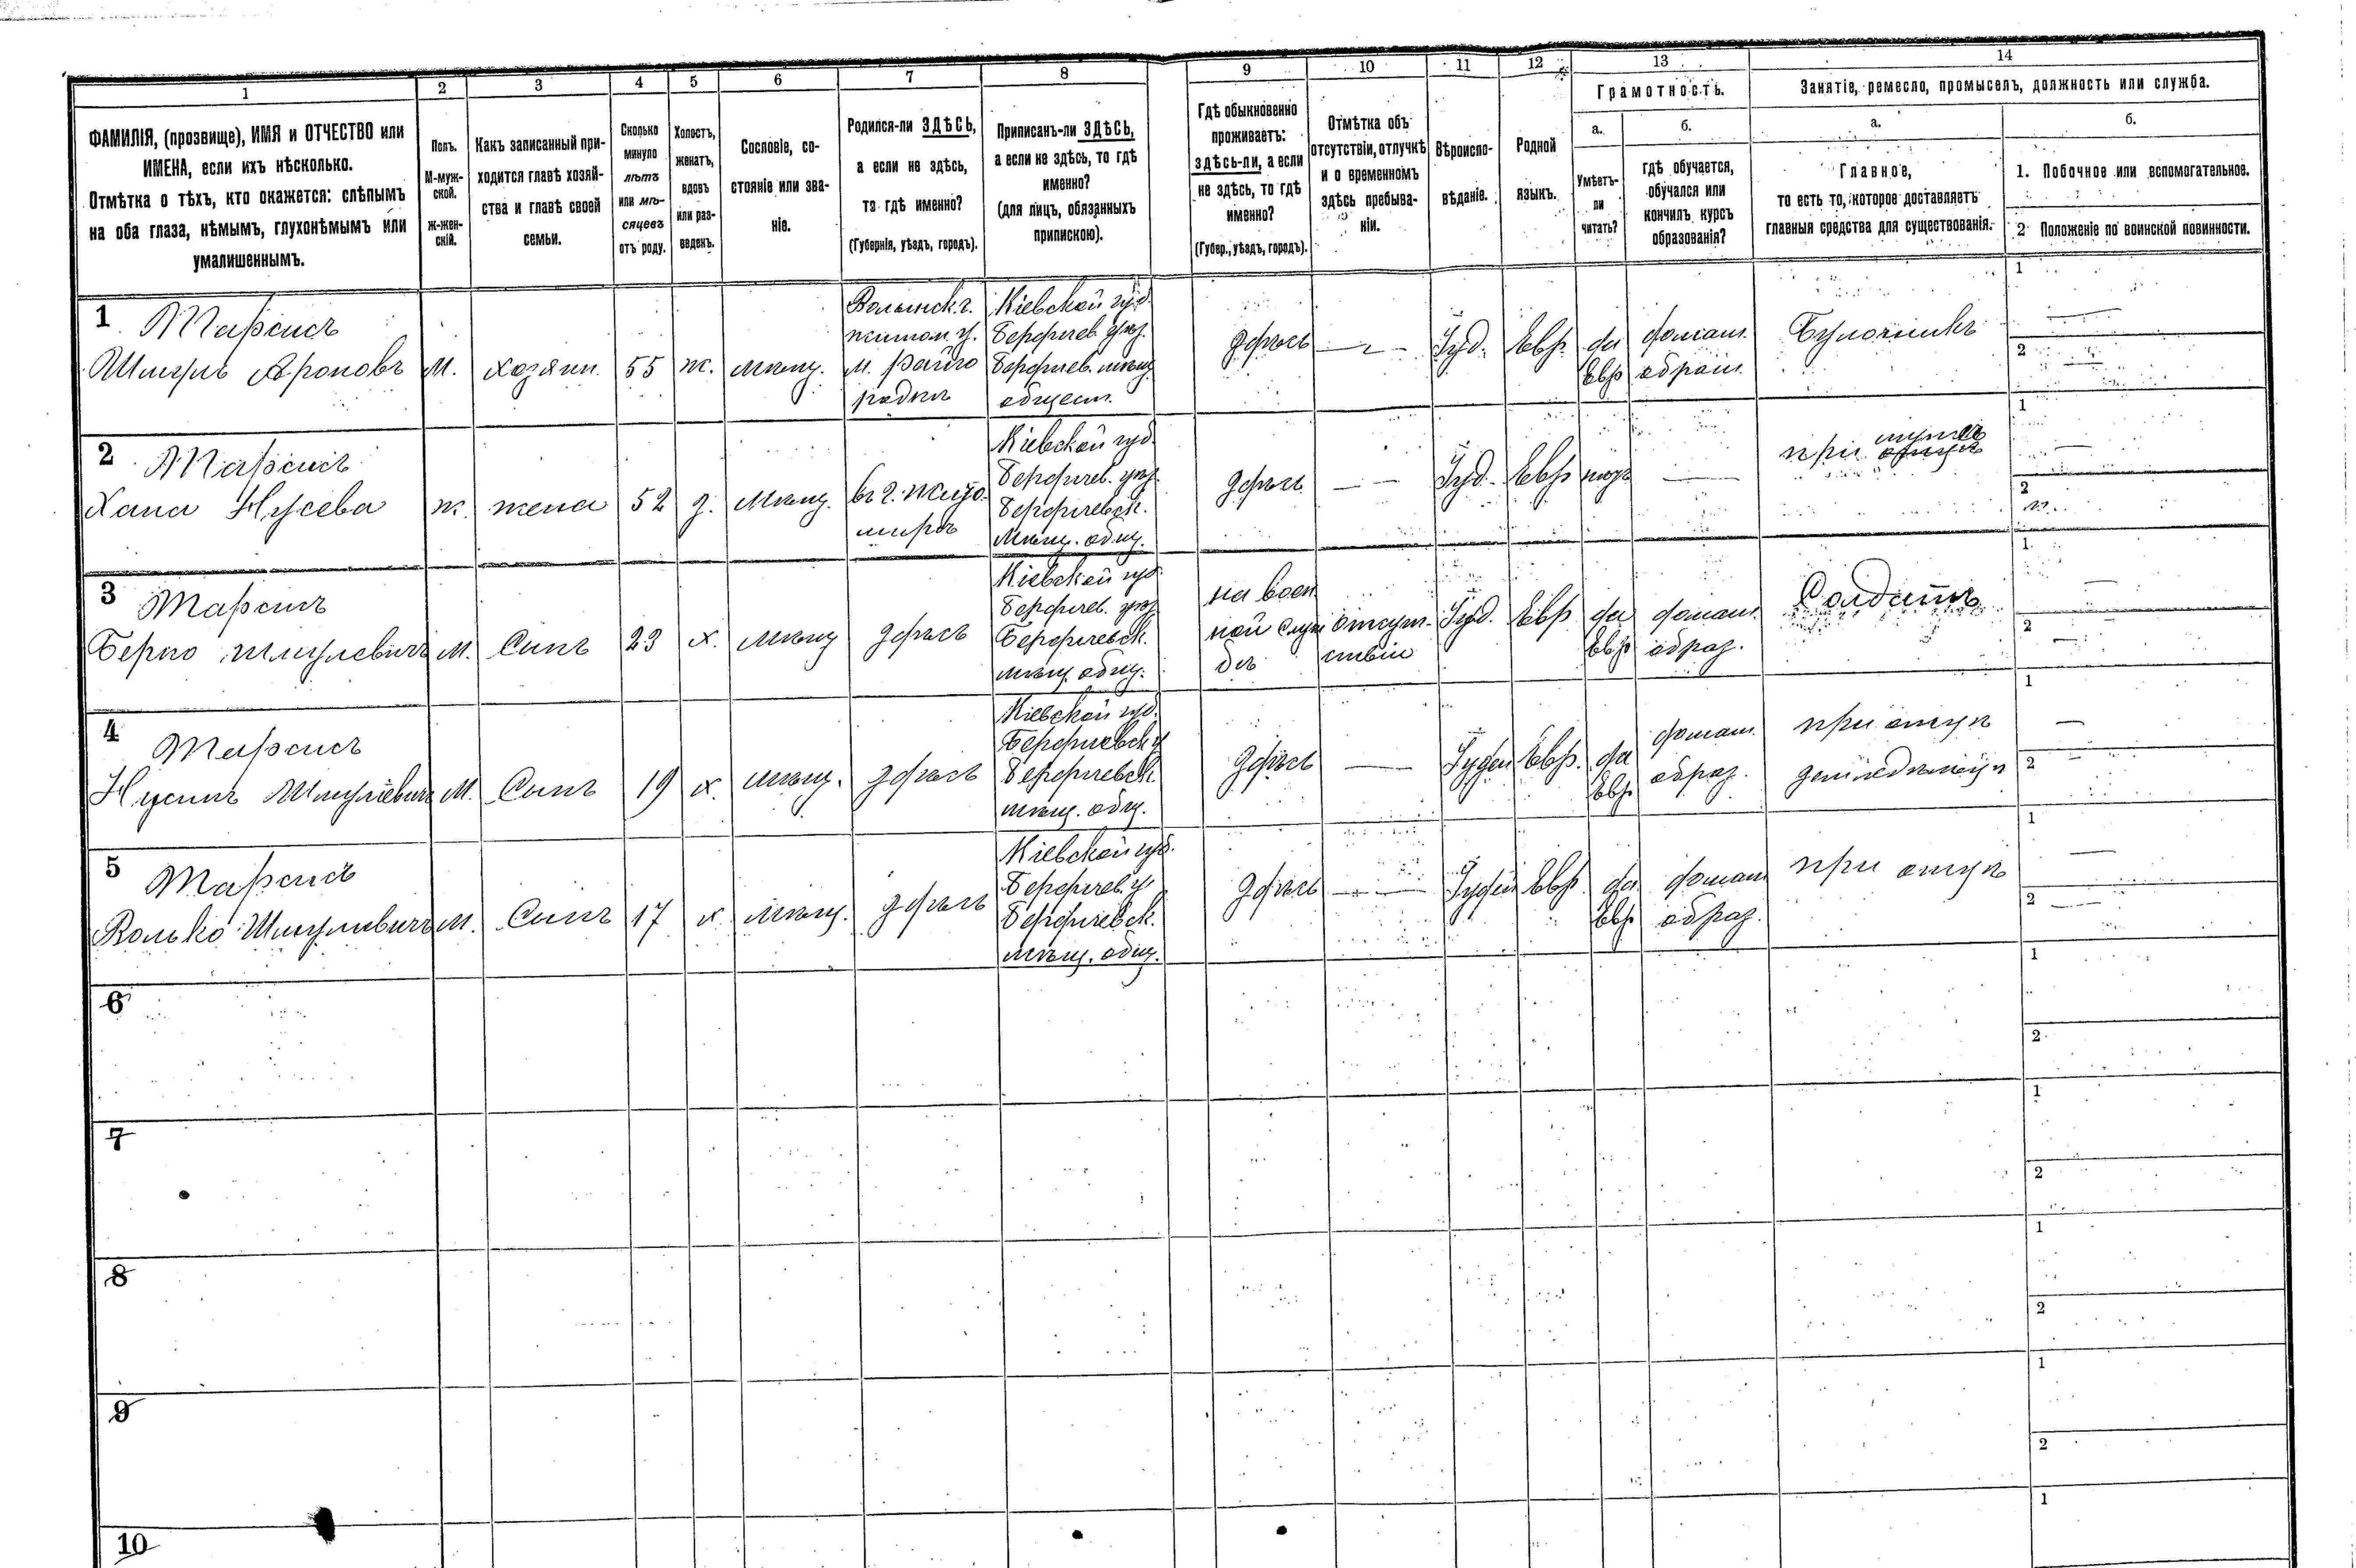 1 2 3 4 5 6 7 8 9 10 11 12 13 14
ФАМИЛІЯ, (прозвище), ИМЯ и ОТЧЕСТВО или
ИМЕНА, если ихъ нѣсколько.
Отмѣтка о тѣхъ, кто окажется: слѣпымъ
на оба глаза, нѣмымъ, глухонѣмымъ или
умалишеннымъ.
Полъ.
М-муж-
ской.
ж-жен-
скій.
Какъ записанный при-
ходится главѣ хозяй-
ства и главѣ своей
семьи.
Сколько
минуло
лѣтъ
или мѣ-
сяцевъ
отъ роду.
Холостъ,
женатъ,
вдовъ
или раз-
веденъ.
Сословіе, со-
стояніе или зва-
ніе.
Родился-ли ЗДѢСЬ,
а если не здѣсь,
то гдѣ именно?
(Губернія, уѣздъ, городъ).
Приписанъ-ли ЗДѢСЬ,
а если не здѣсь, то гдѣ
именно?
(для лицъ, обязанныхъ
припискою).
Гдѣ обыкновенно
проживаетъ:
здѣсь-ли, а если
не здѣсь, то гдѣ
именно?
(Губер., уѣздъ, городъ).
Отмѣтка объ
отсутствіи, отлучкѣ
и о временномъ
здѣсь пребыва-
ніи.
Вѣроиспо-
вѣданіе.
Родной
языкъ.
Грамотность.
а.
Умѣетъ-
ли
читать?
б.
гдѣ обучается,
обучался или
кончилъ курсъ
образованія?
Занятіе, ремесло, промыселъ, должность или служба.
а.
Главное,
то есть то, которое доставляетъ
главныя средства для существованія.
б.
1. Побочное или вспомогательное.
2 Положеніе по воинской повинности.
1
Шмуль Ароновъ
М.
хозяин.
55
ж.
мѣщ.
Волынск. г.
житом. у.
м.
Кіевской губ.
Бердичев. уѣз.
Бердичев. мѣщ.
общест.
здѣсь
Іуд.
Евр.
да
Евр
домаш.
Булочникъ
1
2
2
Хана Нусева
ж.
жена
52
з.
мѣщ.
въ г. Жито-
мирѣ
Кіевской губ.
Бердичев. уѣз.
Бердичевск.
мѣщ. общ.
здѣсь
Іуд.
Евр
при
мужѣ
1
2
3
Берко Шмулевичъ
М.
Сынъ
23
х.
мѣщ
здѣсь
Кіевской губ.
Бердичев. уѣз
Бердичевск.
мѣщ. общ.
на воен
ной служ
бѣ
отсут-
ствіи
Іуд.
Евр
да
Евр
домаш.
образ.
Солдатъ
1
2
4
М.
Сынъ
19
х.
мѣщ.
здѣсь
Кіевской губ.
Бердичевск у
Бердичевск.
мѣщ. общ.
здѣсь
Іудей
Евр.
да
Евр
домаш
образ.
при отцѣ
1
2
5
Волько Шмулевичъ
М.
Сынъ
17
х
мѣщ.
здѣсь
Кіевской губ.
Бердичев. у
Бердичевск.
мѣщ. общ.
здѣсь
Іудей
Евр.
да
Евр
домаш
образ.
при отцѣ
1
2
6
1
2
7
1
2
8
1
2
9
1
2
10
1